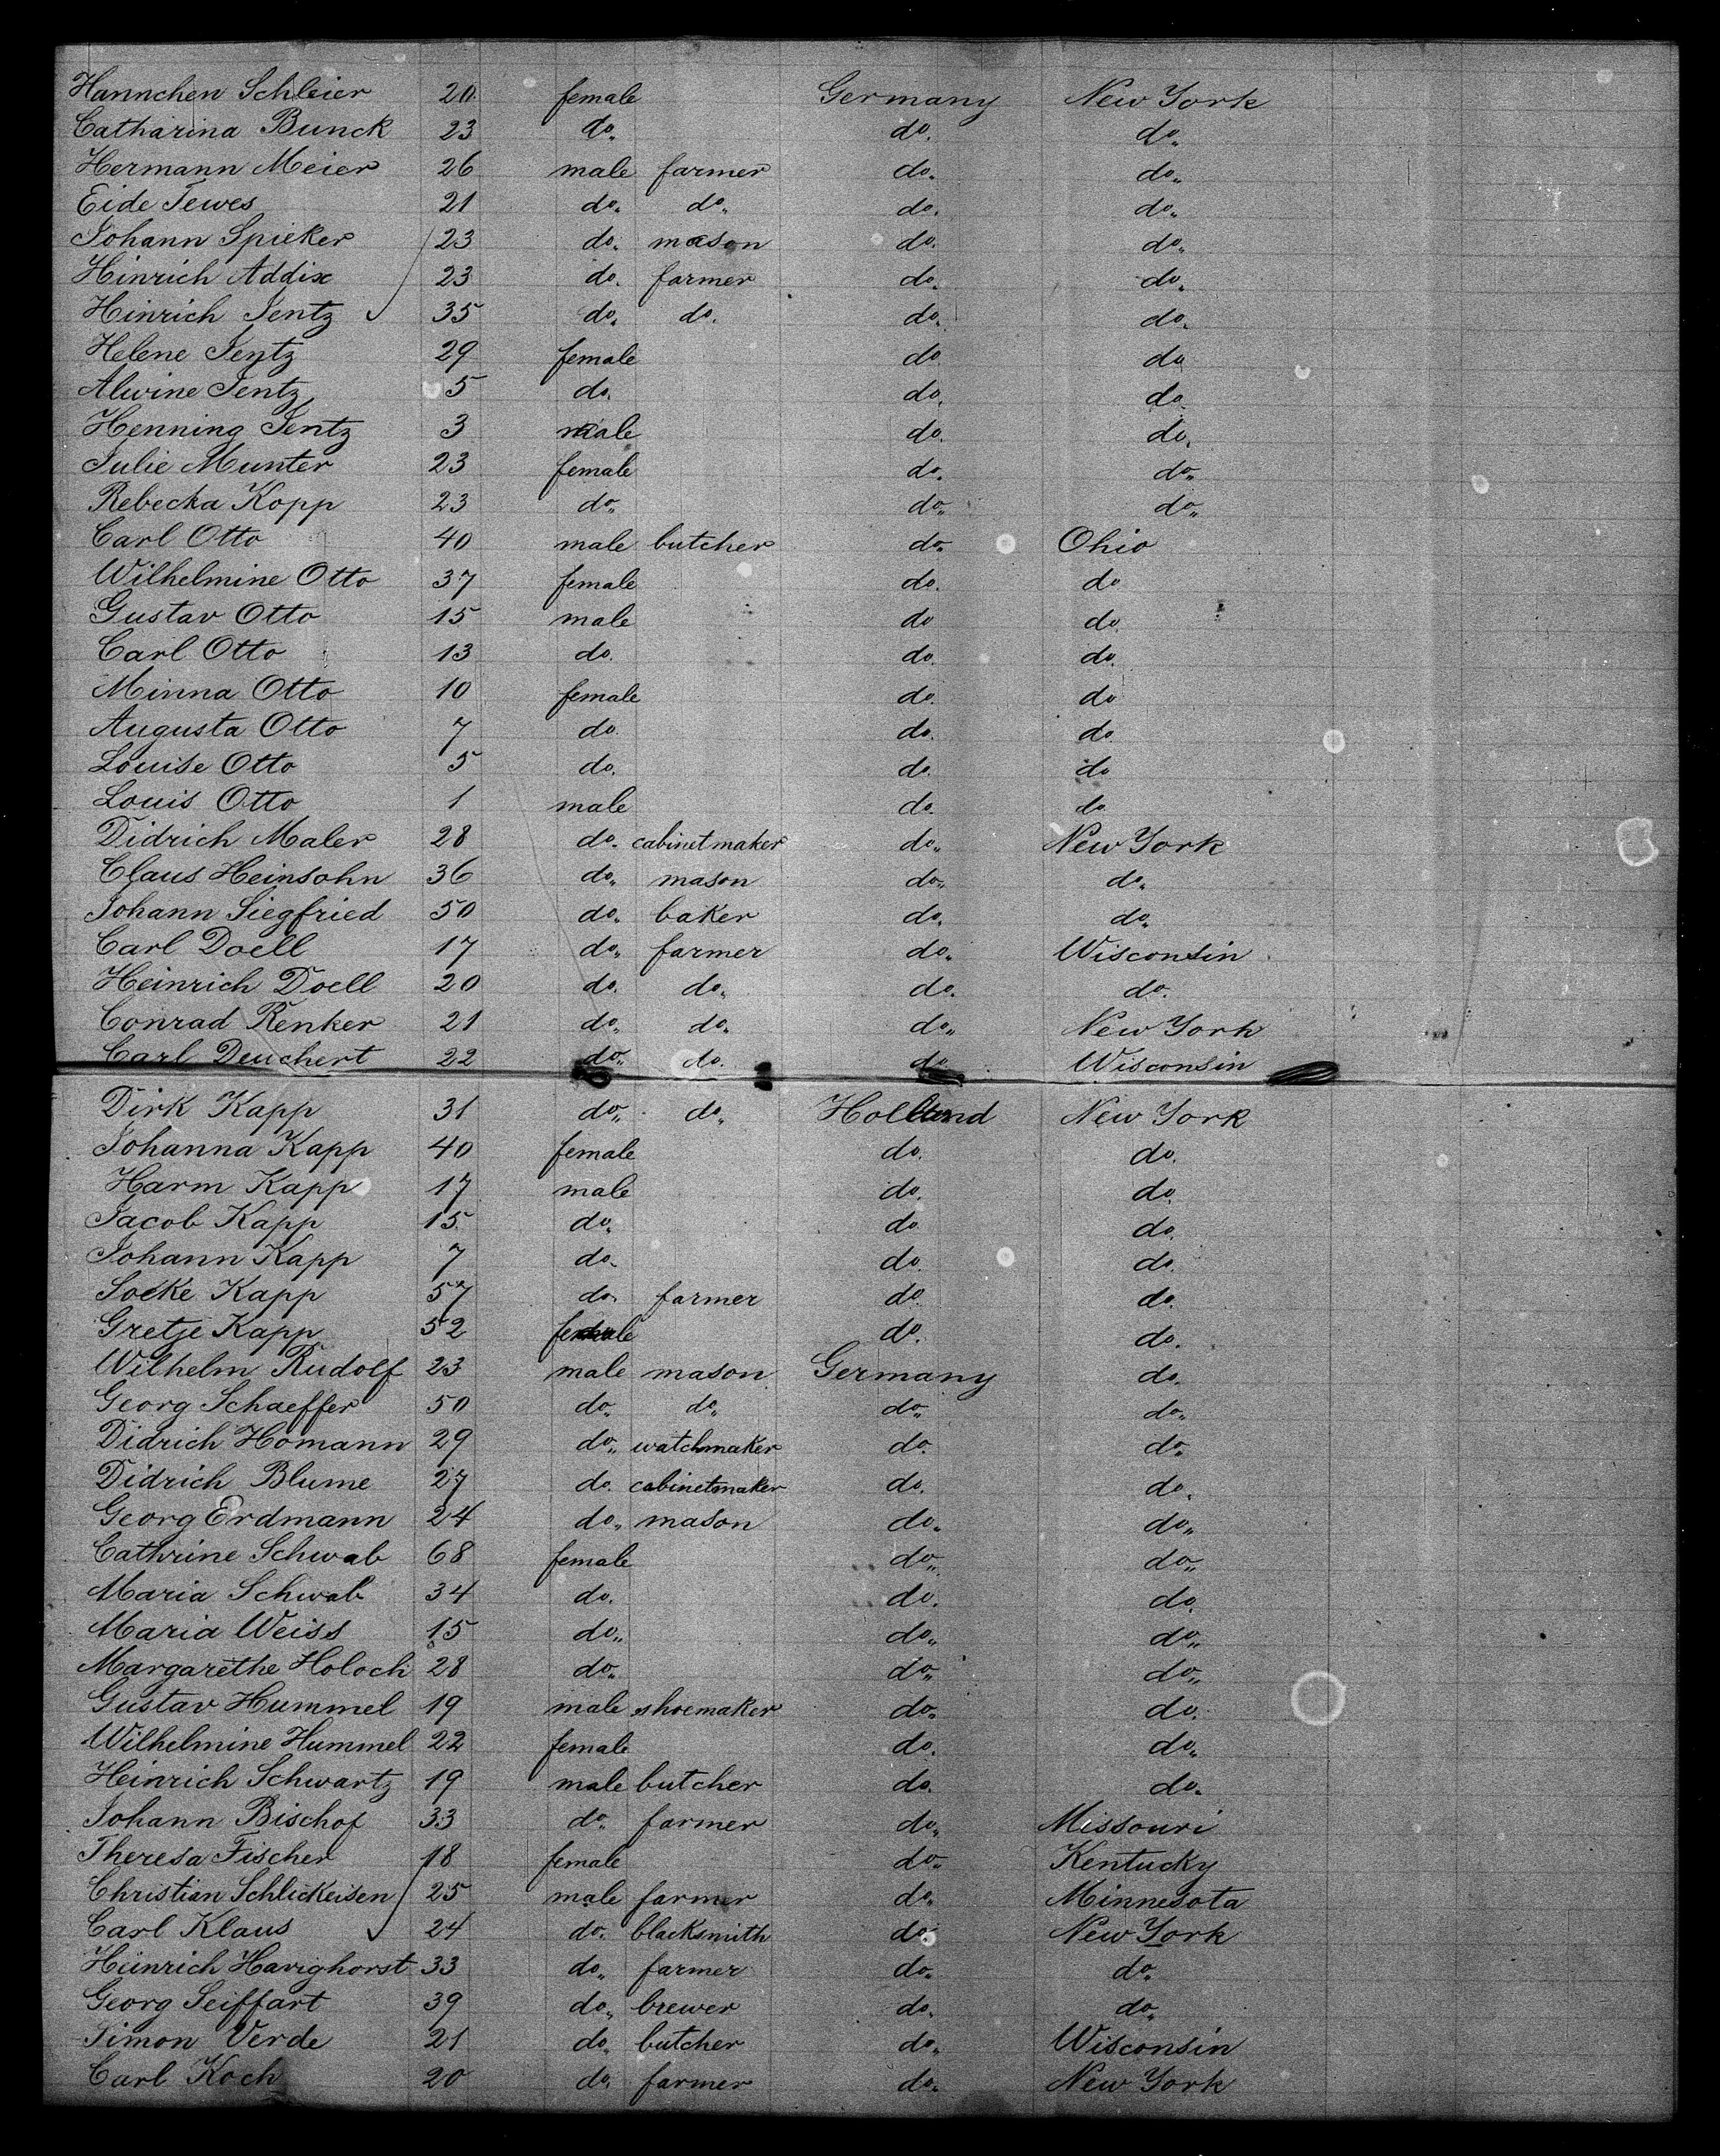 Hannchen Schleier 20 female Germany New York
Catharina Bunck 23 do. do. do.
Hermann Meier 26 male farmer do. do.
Eide Tewes 21 do. do. do. do.
Johann Spieker 23 do. mason do. do.
Hinrich Addix 23 do. farmer do. do.
Hinrich Jentz 35 do. do. do. do.
Helene Jentz 29 female do. do
Alwine Jentz 5 do. do. do.
Henning Jentz 3 male do. do.
Julie Munter 23 female do. do.
Rebecka Kopp 23 do. do. do.
Carl Otto 40 male butcher do. Ohio
Wilhelmine Otto 37 female do. do
Gustav Otto 15 male do do.
Carl Otto 13 do. do. do.
Minna Otto 10 female do. do
Augusta Otto 7 do. do. do.
Louise Otto 5 do. do. do
Louis Otto 1 male do. do.
Didrich Maler 28 do. cabinetmaker do. New York
Claus Heinsohn 36 do. mason do. do.
Johann Siegfried 50 do. baker do. do.
Carl Doell 17 do. farmer do. Wisconsin
Heinrich Doell 20 do. do. do. do.
Conrad Renker 21 do. do. do. New York
Carl Deuchert 22 do. do. do. Wisconsin
Dirk Kapp 31 do. do. Holland New York
Johanna Kapp 40 female do. do.
Harm Kapp 17 male do. do.
Jacob Kapp 15 do. do. do.
Johann Kapp 7 do. do. do.
Socke Kapp 57 do. farmer do. do.
Gretje Kapp 52 female do. do.
Wilhelm Rudolf 23 male mason Germany do.
Georg Schaeffer 50 do. do. do. do.
Didrich Homann 29 do. watchmaker do. do.
Didrich Blume 27 do. cabinetmaker do. do.
Georg Erdmann 24 do. mason do. do.
Cathrine Schwab 68 female do. do.
Maria Schwab 34 do. do. do.
Maria Weiss 15 do. do. do.
Margarethe Holoch 28 do. do. do.
Gustav Hummel 19 male shoemaker do. do.
Wilhelmine Hummel 22 female do. do.
Heinrich Schwartz 19 male butcher do. do.
Johann Bischof 33 do. farmer do. Missouri
Theresa Fischer 18 female do. Kentucky
Christian Schlickeisen 25 male farmer do. Minnesota
Carl Klaus 24 do. blacksmith do. New York
Heinrich Harighorst 33 do. farmer do. do.
Georg Seiffart 39 do. brewer do. do.
Simon Verde 21 do. butcher do. Wisconsin
Carl Koch 20 do. farmer do. New York